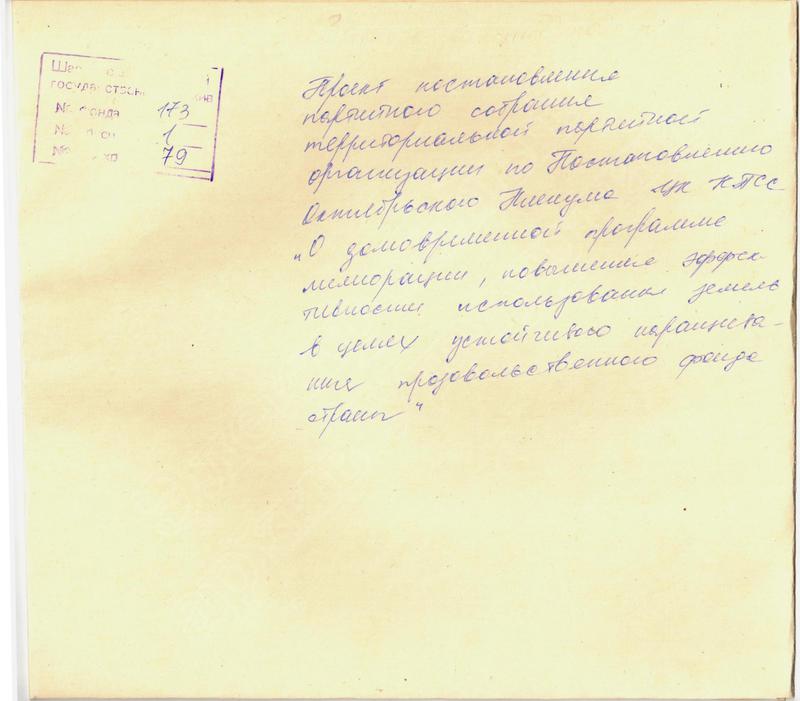 государствен
№ фонда 173
1
№ 79
Проект постановления
партийного собрания
территориальной партийной
организации по Постановлению
Октябрьского Пленума ЦК КПСС
„О долговременной программе
мелиорации, повышения эффек-
тивности использования земель
в целях устойчивого наращива-
ния продовольственного фонда
страны"